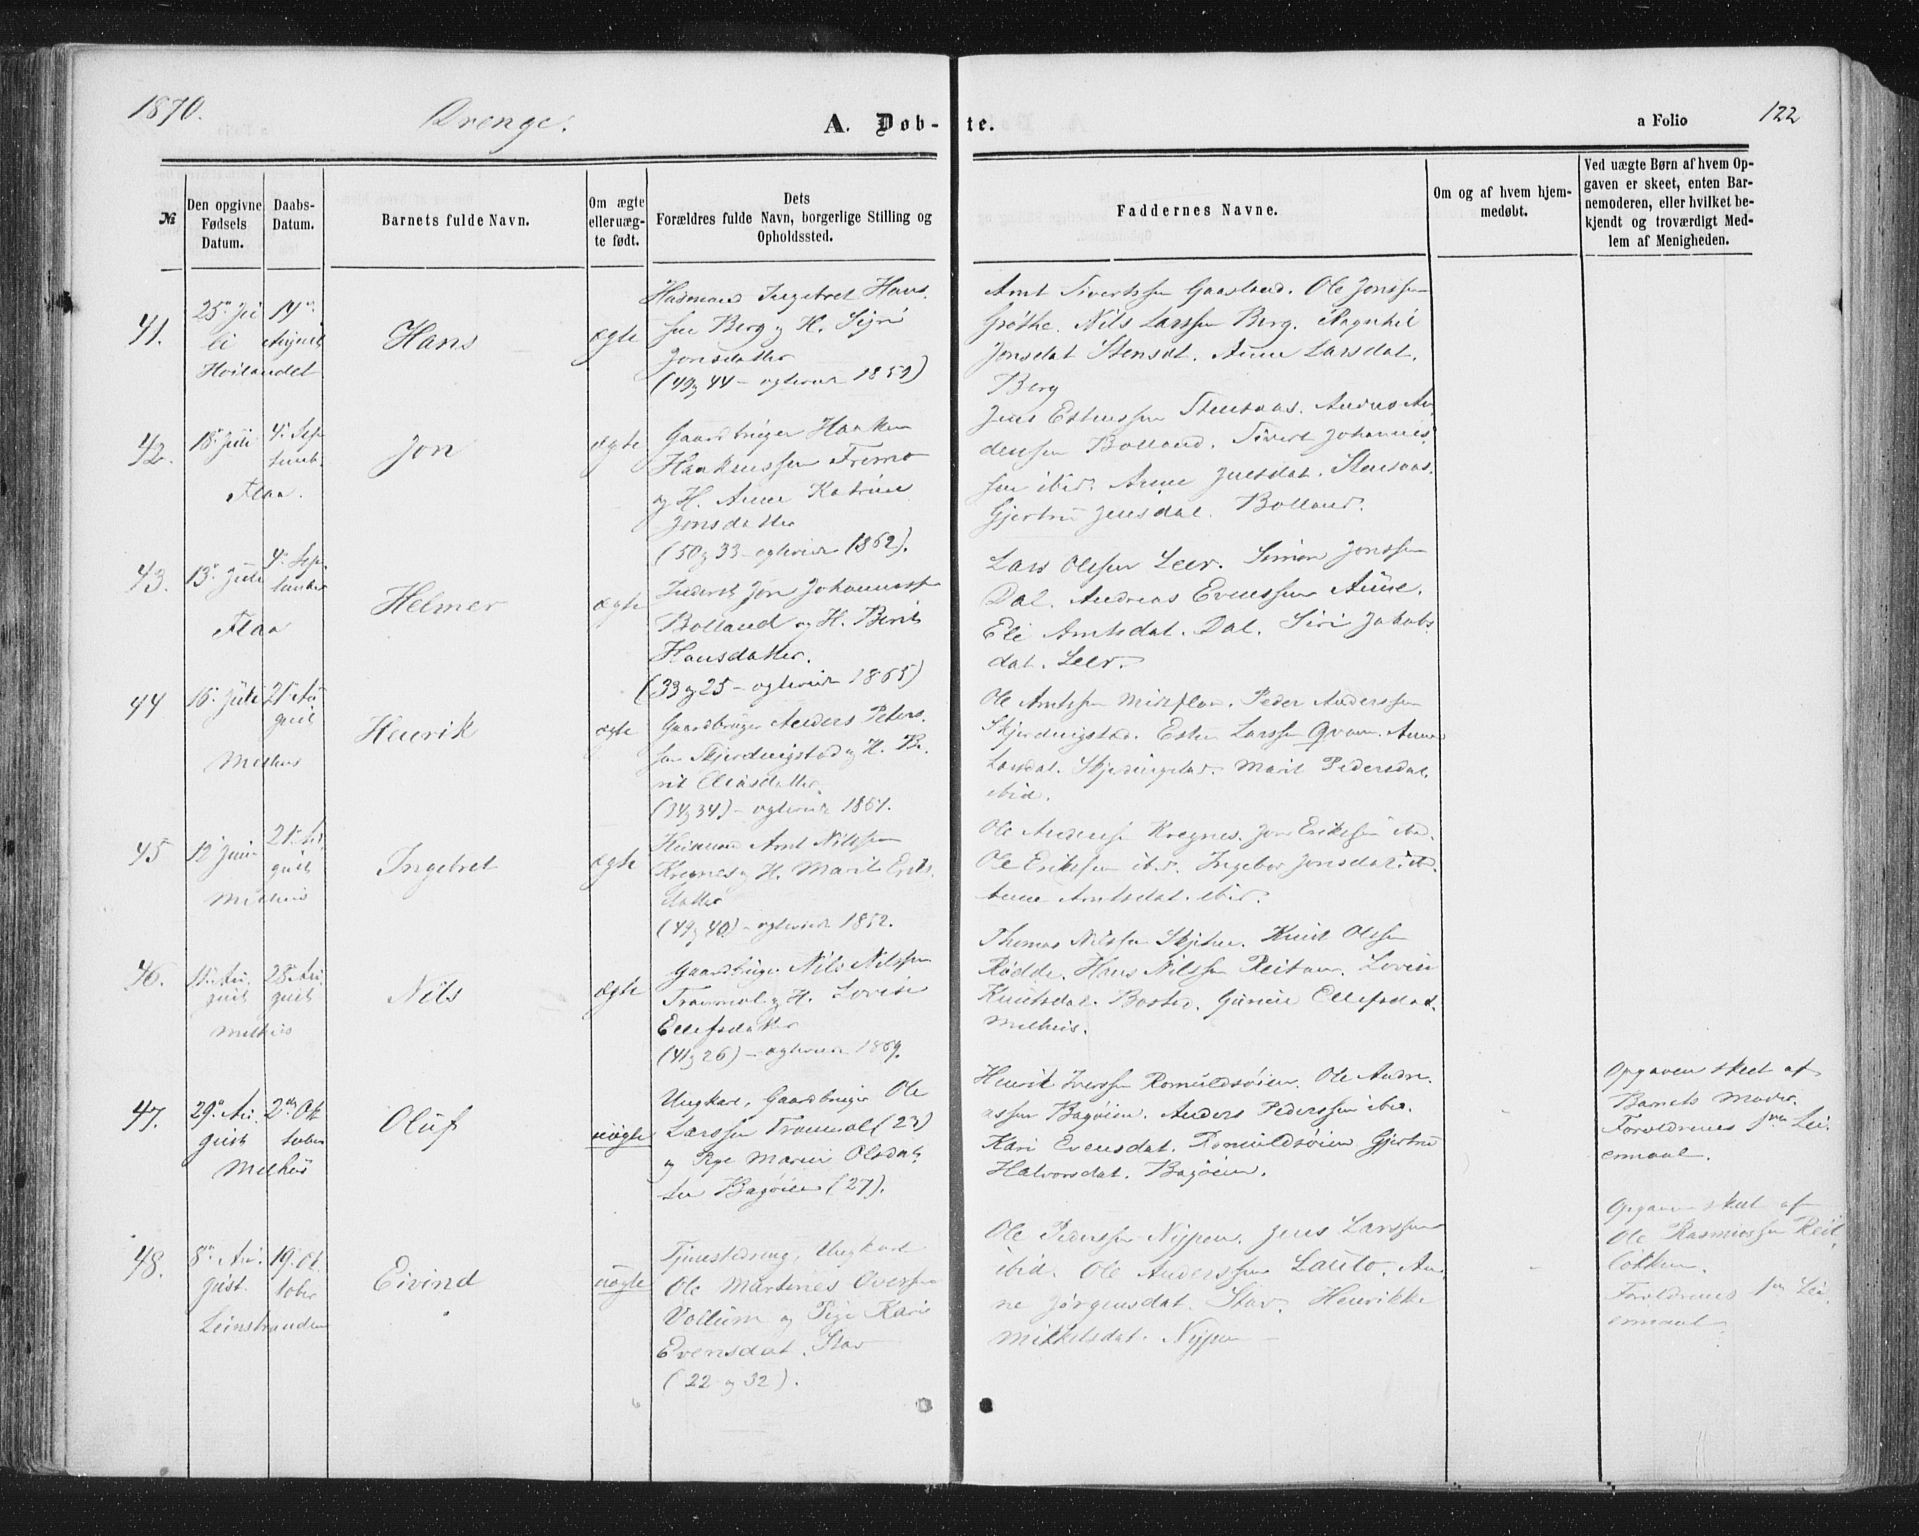 1870.
Drenge.
A. Døb-
te.
a Folio
122
№
Den opgivne
Fødsels
Datum.
Daabs-
Datum.
Barnets fulde Navn.
Om ægte
elleruæg-
te født.
Dets
Forældres fulde Navn, borgerlige Stilling og
Opholdssted.
Faddernes Navne.
Om og af hvem hjem-
medøbt.
Ved uægte Børn af hvem Op-
gaven er skeet, enten Bar-
nemoderen, eller hvilket be-
kjendt og troværdigt Med-
lem af Menigheden.
41.
Hans
ægte
Ingebret Hans
sen Berg og H. Sigri
Jonsdatter
Arnt Sivertssen Gaasland. Ole Jonssen
Grøthe. Nils Larssen Berg. Ragnhil
Jonsdat. Anne Larsdat.
Berg
42.
18 Juli
4 Sep
temb.
Flaa.
Jon
ægte
Gaardbruger Haaken
Haakenssen Fremo
og H. Anne Katrine
Jonsdatter
(50 og 33 - 1862).
Jens Estenssen Stensaas. Anders An-
derssen Bolland. Sivert Johannes
sen ibid. Anne Jensdat. Stensaas.
Gjertru Jensdat. Bolland.
43.
13 Juli
4 Sep
tember
Flaa
Helmer
ægte
Jon Johannessen
Bolland og H. Berit
Hansdatter.
(33 og 25 - 1865)
Lars Olssen Leer. Simon Jonssen
Dal. Andreas Evenssen Aune.
Eli Arntsdat. Dal. Siri Jakobs-
dat. Leer.
44
16 Juli
21 Au
gust
Melhus
Henrik
ægte
Gaardbruger Anders Peders
sen Skjerdingstad og H. Be
rit Eliasdatter.
Ole Arntssen Midtflaa. Peder Anderssen
Skjerdingstad. Esten Larssen Qvam. Anne
Larsdat. Skjerdingstad. Marit Pedersdat.
ibid.
45
12 Juni
21 Au
gust
Melhus
Ingebret
ægte
Husmand Arnt Nilssen
Kregnes og H. Marit Eriks
datter
(49 og 40) - 1852.
Ole Anderssen Kregnes. Jon Erikssen ibid.
Ole Erikssen ibid. Ingebor Jonsdat. ibid.
Anne Arntsdat. ibid.
46.
11 Au
gust
28 Au
gust
Melhus
Nils
ægte
Gaardbruger Nils Nilssen
Tranmæl og H. Lovise
Ellefsdatter
(41 og 26) - 1869.
Thomas Nilssen Skjetne. Knut Olssen
Rødde. Hans Nilssen Reitan. Lovise
Knutsdat. Bosted. Gunnil Ellefsdat.
Melhus.
47.
29 Au
gust
2den Ok
tober
Melhus
Oluf
uægte
Ungkarl, Gaardbruger Ole
Larssen Tranmæl (23)
og Pige Marie Olsdat
ter Bagøien (27).
Henrik Iverssen Romuldsøien. Ole Andre
assen Bagøien. Anders Pederssen ibid.
Kari Evensdat. Romuldsøien Gjertru
Halvorsdat. Bagøien.
Opgaven skeet af
Barnets Moder.
Forældrenes første Lei
ermaal.
48.
8 Au
gust.
19 Ok
tober
Leinstranden
Eivind
uægte
Tjenestedreng, Ungkarl
Ole Martines
Vollum og Pige Kari
Evensdat. Stav
(22 og 32).
Ole Pederssen Nypan. Jens Larssen
ibid. Ole Anderssen Lauto. An
ne Jørgensdat. Stav. Henrikke
Mikkelsdat. Nypan
Opgaven skeet af
Ole Rasmussen Reit
løkken.
Forældrenes Lei
ermaal